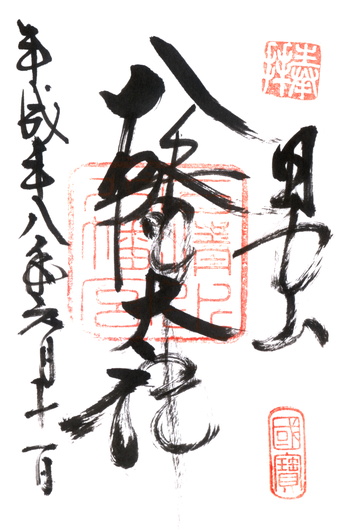 奉拝
男山
國寶
八幡大神
石清水
八幡宮
平成廿八年六月十一日